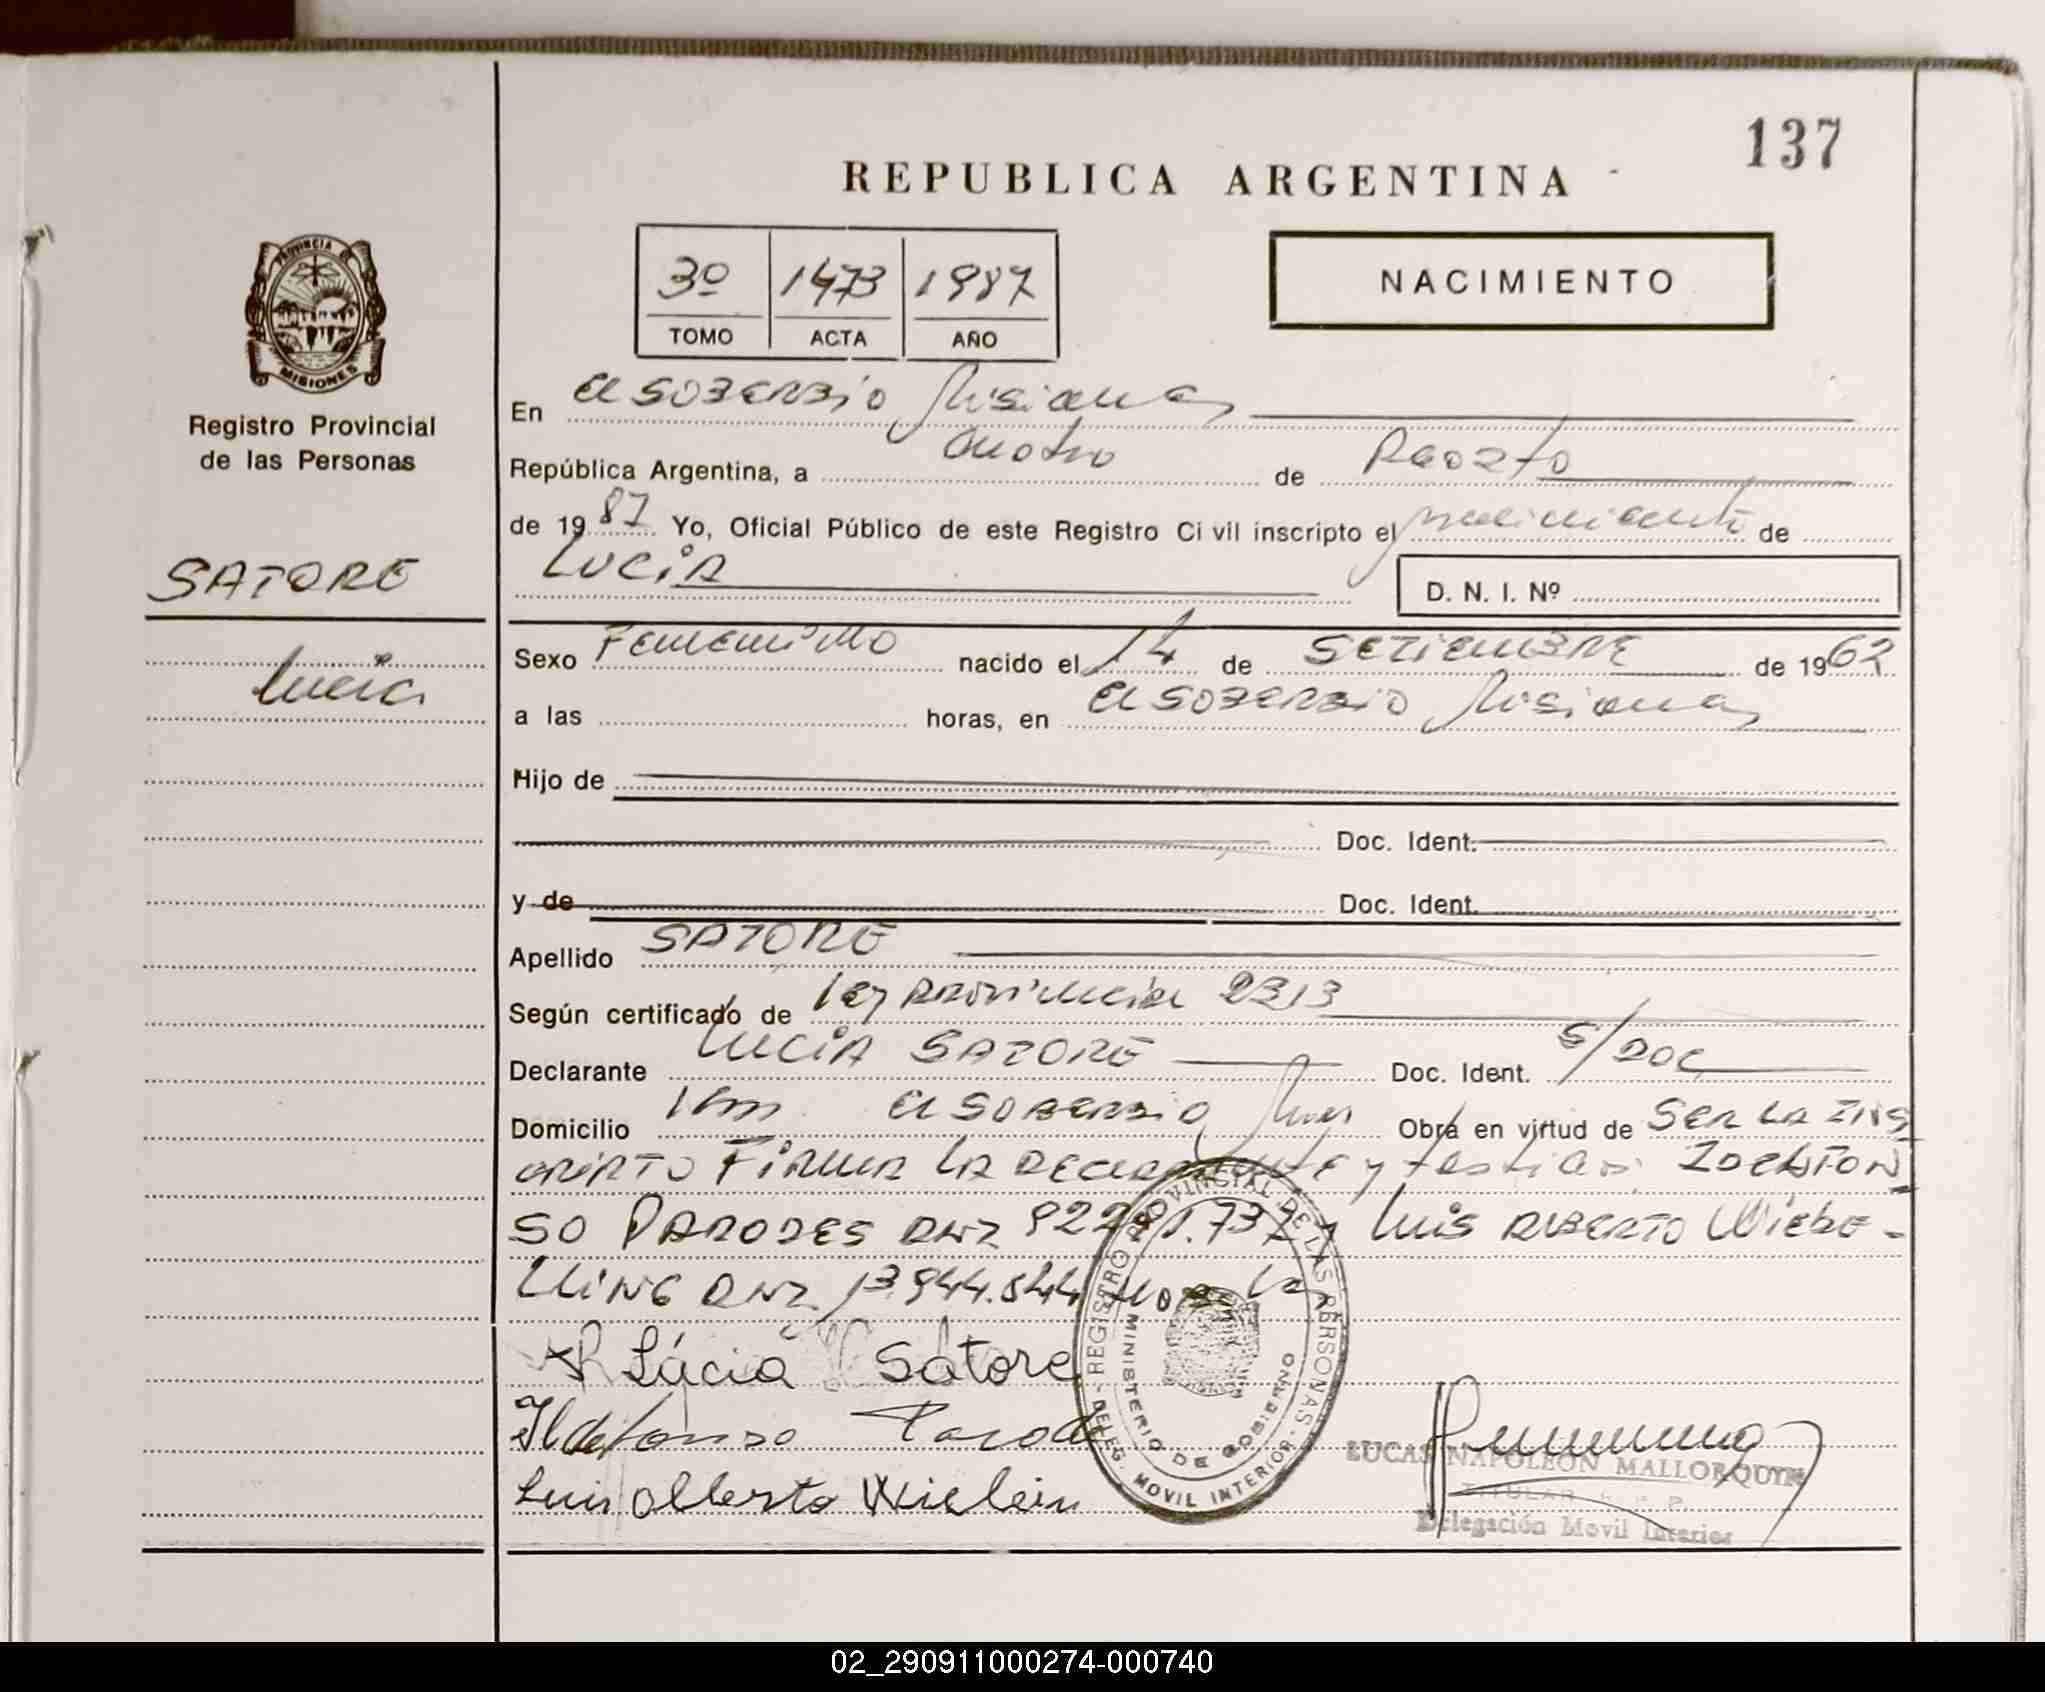 137
REPUBLICA ARGENTINA
3º 1473 1987
TOMO ACTA AÑO
NACIMIENTO
PROVINCIA DE
MISIONES
Registro Provincial
de las Personas
SATORE
Lucia
En El SOBERBIO Misiones
República Argentina, a cuatro de AGOSTO
de 1987 Yo, Oficial Público de este Registro Civil inscripto el nacimiento de
LUCIA
D. N. I. Nº
Sexo Femenino nacido el 14 de SETIEMBRE de 1962
a las horas, en El SOBERBIO Misiones
Hijo de
Doc. Ident.
y de Doc. Ident.
Apellido SATORE
Según certificado de ley PROVINCIAL 2313
Declarante LUCIA SATORE Doc. Ident. S/DOC
Domicilio El SOBERBIO Mnes Obra en virtud de SER LA INS
CRIPTO FIRMA LA DECLARANTE y testigos: ILDEFON
SO PARODES DNI y Luis ALBERTO Wiebe-
LLING DNI 13.944.844
Lúcia Satore
Ildefonso
Luis Alberto
REGISTRO PROVINCIAL DE LAS PERSONAS
MINISTERIO DE GOBIERNO
DELEG. MOVIL INTERIOR
LUCAS NAPOLEON MALLORQUIN
TITULAR
Delegación Movil Interior
02_290911000274-000740